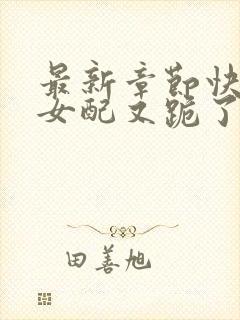 最新章节快
女配又跪了
田善旭